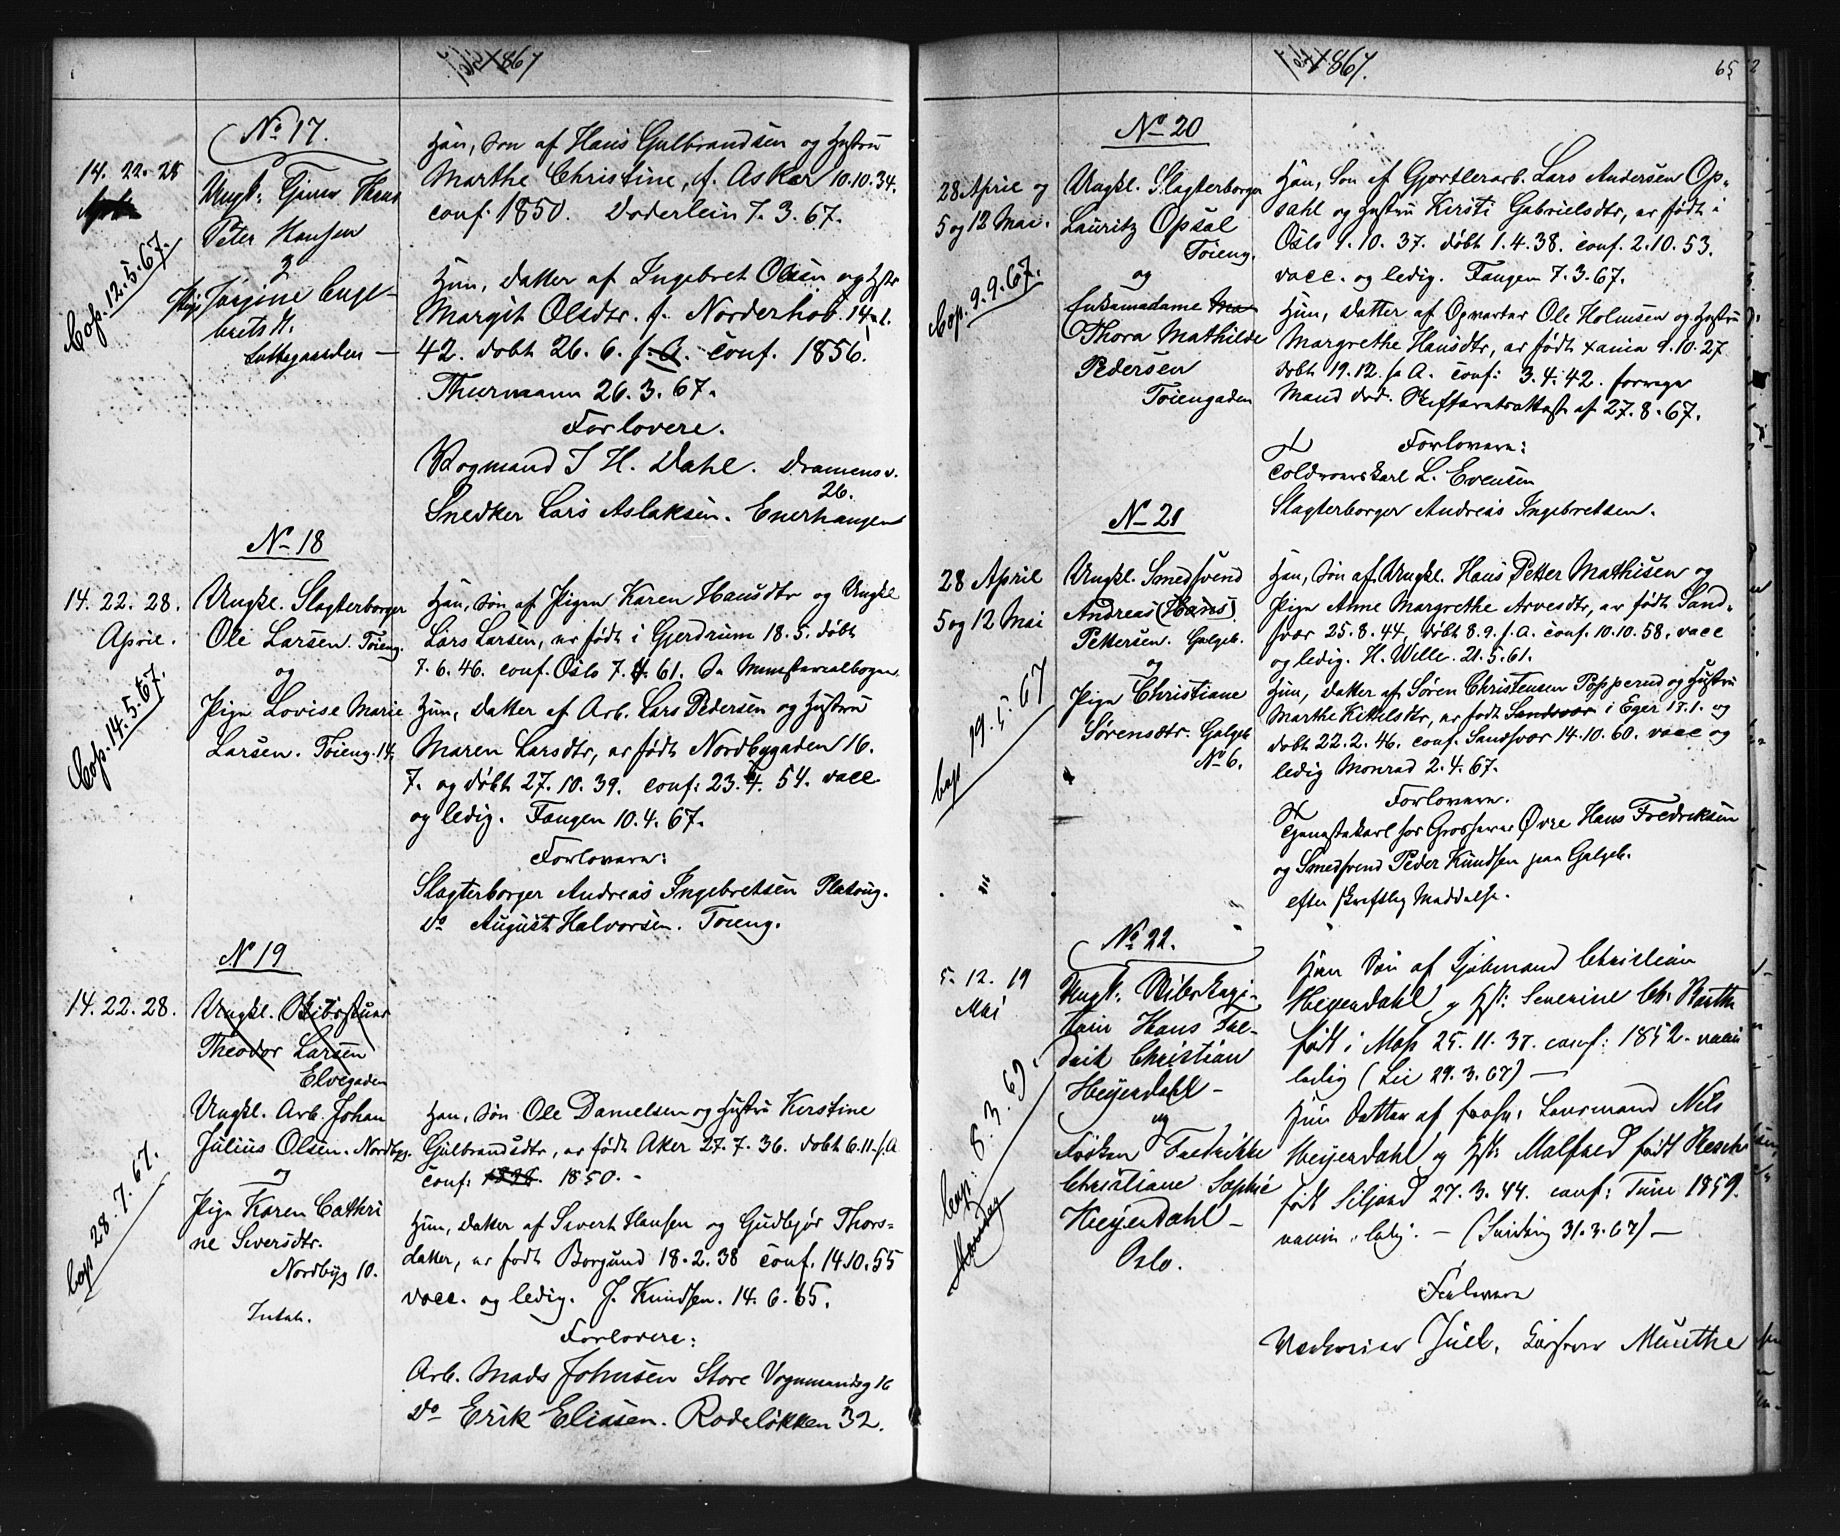 1867
No 17.
14. 22. 28
Cop. 12.5.67.
Ungk. Tjener Hans
Peter Hansen
&
Pige Jørgine Inge-
brets dt.
Løkkegaarden —
Han, Søn af Hans Gulbrandsen og Hustru
Marthe Christine, f. Asker 10.10.34.
conf. 1850. Døderlein 7.3.67.
Hun, Datter af Ingebret Olsen og Hstr
Margit Olsdtr. f. Norderhov. 14
42. døbt 26.6. s. A. conf. 1856.
Thurmann 26.3.67.
Forlovere.
Vogmand J H. Dahl. Dramensv.
26.
Snedker Lars Aslaksen. Enerhaugen
No 18
14. 22. 28.
April.
Cop. 14.5.67.
Ungkl. Slagterborger
Ole Larsen. Tøieng.
og
Pige Lovise Marie
Larsen. Tøieng. 14.
Han, Søn af Pigen Karen Hansdtr og Ungkl
Lars Larsen, er født i Gjerdrum 18.5. døbt
7.6.46. conf. Oslo 7.4.61. Se Ministerialbogen.
Hun, Datter af Arb. Lars Pedersen og Hustru
Maren Larsdtr, er født Nordbygaden 16.
7. og døbt 27.10.39. conf: 23.4.54. vacc
og ledig. Fangen 10.4.67.
Forlovere:
Slagterborger Andreas Ingebretsen Platoug.
Do August Halvorsen. Tøieng.
N 19
14. 22. 28.
cop 28.7.67.
Ungkl.
Theodor Larsen
Elvegaden
Ungkl. Arb. Johan
Julius Olsen. Nordbyg.
og
Pige Karen Cathri
ne Siversdtr.
Nordbyg 10.
Han, Søn Ole Danielsen og Hustru Kirstine
Gulbrandsdtr, er født Aker 27.7.36. døbt 6.11. s. A
conf: 1850. -
Hun, Datter af Sivert Hansen og Gudbjør Thors-
datter, er født Borgund 18.2.38 conf. 14.10.55
vacc. og ledig. J. Knudsen. 14.6.65.
Forlovere:
Arb. Mads Johnsen Store Vognmandsg 16
Do Erik Eliasen. Rodeløkken 32.
1867.
65
No 20
28 April og
5 og 12 Mai.
Cop. 9.9.67.
Ungkl. Slagterborger
Lauritz Opsal
Tøieng.
og
Enkemadame Ma
Thora Mathilde
Pedersen
Tøiengaden
Han, Søn af Gjørtlerarb. Lars Andersen Op-
sahl og Hustru Kirsti Gabrielsdtr, er født i
Oslo 9.10.37. døbt 1.4.38. conf. 2.10.53.
vacc. og ledig. Fangen 7.3.67.
Hun, Datter af Opvarter Ole Holmsen og Hustru
Margrethe Hansdtr, er født Xania 9.10.27
døbt 19.12. s A. conf: 3.4.42. forrige
Mand død. Skifteretsattest af 27.8.67.
Forlovere:
Toldroerskarl L. Evensen
Slagterborger Andreas Ingebretsen.
No 21
28 April
5 og 12 Mai
cop 19.5.67
Ungkl. Smedsvend
Andreas (Hans)
Pettersen. Galgeb.
og
Pige Christiane
Sørensdtr. Galgeb
No 6.
Han, Søn af Ungkl. Hans Petter Mathisen og
Pige Anne Margrethe Arvesdtr, er født Sand-
svær 25.8.44, døbt 8.9. s. A. conf. 10.10.58. vacc
og ledig. H. Wille. 21.5.61.
Hun, Datter af Søren Christensen Popperud og Hustru
Marthe Kittelsdtr, er født Sandsvær i Eger 17.1. og
døbt 22.2.46. conf. Sandsvær 14.10.60. vacc og
ledig Monrad 2.4.67.
Forlovere.
Tjenestekarl hos Grosserer Øvre Hans Fredriksen
og Smedsvend Peder Knudsen paa Galgeb.
efter skriftlig Meddelse.
No 22.
5. 12. 19
Mai
Cop. 8.3.69.
Mandag
Ungk. Skibskapi-
tain Hans Fre-
drik Christian
Heyerdahl —
og
Frøken Fredrikke
Christiane Sophie
Heyerdahl —
Oslo.
Han Søn af Kjøbmand Christian
Heyerdahl og Hst: Severine Ch. Barth
født i Moss 25.11.37. conf: 1852. vaccin
ledig (Lie 29.3.67) —
Hun Datter af forhv: Lensmand Nils
Heyerdahl og Hst: Malfred født Resch
født Siljord 27.3.44. conf: Tune 1859.
vaccin. ledig. — ( 31.3.67) —
Forlovere
Juel. Munthe